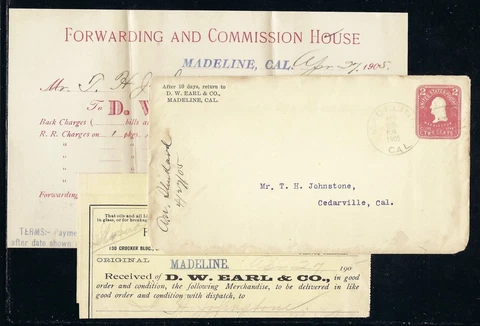 FORWARDING AND COMMISSION HOUSE
MADELINE, CAL. Apr 1905
Mr. T. H. J
TO D. W
Back Charges ( bills a
R. R. Charges on 1 pkgs.
"
"
"
"
Forwarding
TERMS:- Payme
after date shown
After 10 days, return to
D. W. EARL & CO.,
MADELINE, CAL.
2 2
UNITED STATES
TWO CENTS
CAL
4/27/05
Mr. T. H. Johnstone,
Cedarville, Cal.
That oils and all Li
in glass, or for breakag
130 CROCKER BLDG.,
ORIGINAL
MADELINE, 190
Received of D. W. EARL & CO., in good
order and condition, the following Merchandise, to be delivered in like
good order and condition with dispatch, to
Johnstone